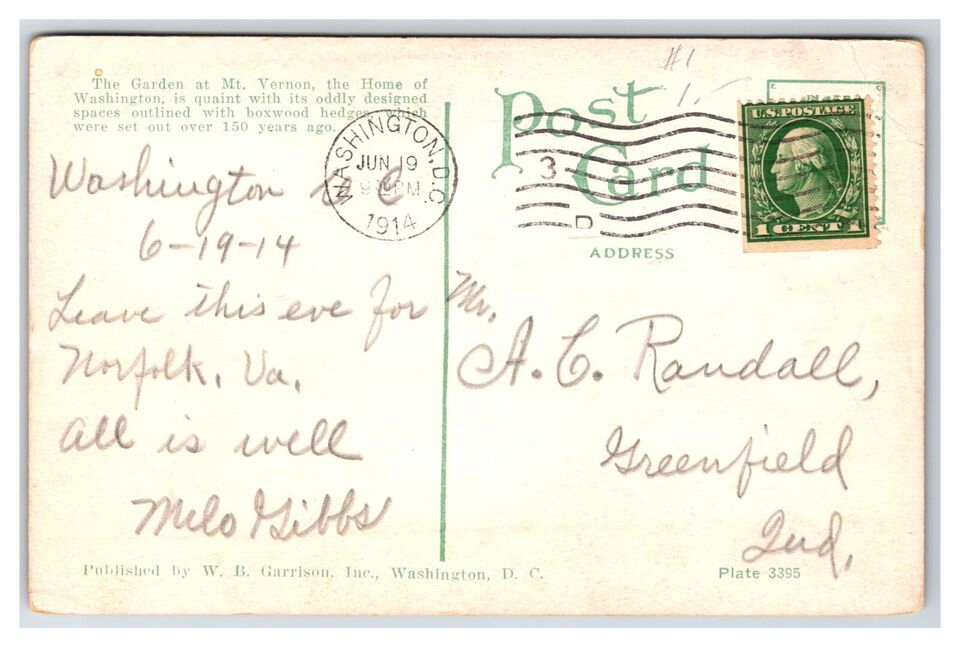 The Garden at Mt. Vernon, the Home of
Washington, is quaint with its oddly designed
spaces outlined with boxwood hedges, which
were set out over 150 years ago.
Washington D C
6-19-14
Leave this eve for
Norfolk, Va,
all is well
Milo Gibbs
Published by W. B. Garrison, Inc., Washington, D. C.
WASHINGTON, D.C.
JUN 19
PM
1914
3
D
#1
1.-
Post
Card
ADDRESS
U.S. POSTAGE
1 CENT 1
Mr.
A. C. Randall,
Greenfield
Ind.
Plate 3395